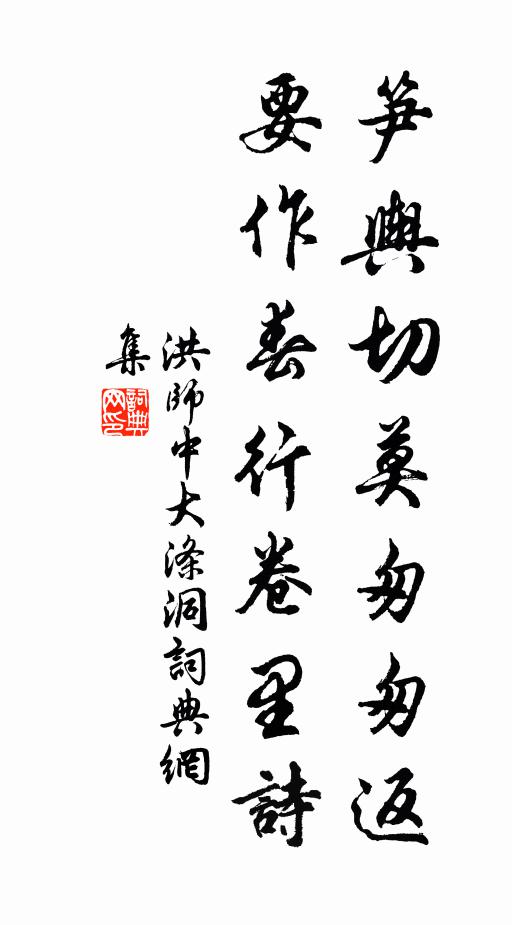 笋輿切莫匆匆返
要作春行卷里詩
洪師中大滌洞詞典網
集
詞典
网印